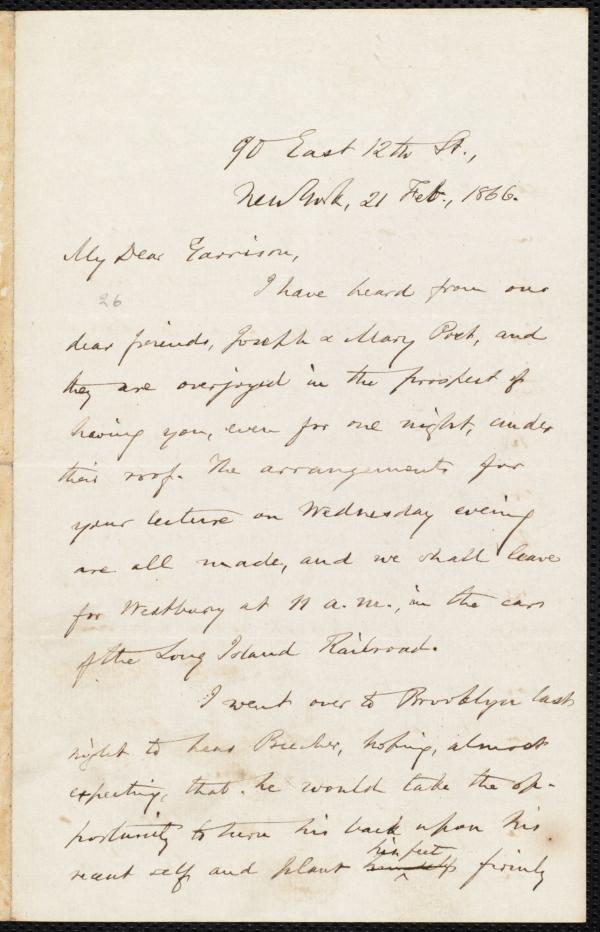 90 East 12th St.,
New York, 21 Feb., 1866.
My Dear Garrison,
26
I have heard from our
dear friends, Joseph & Mary Post, and
they are overjoyed in the prospect of
having you, even for one night, under
their roof. The arrangements for
your lecture on Wednesday evening
are all made, and we shall leave
for Westbury at 11 a.m., in the cars
of the Long Island Railroad.
I went over to Brooklyn last
night to hear Beecher, hoping, almost
expecting, that he would take the op-
portunity to turn his back upon his
his feet
recent self and plant himself firmly